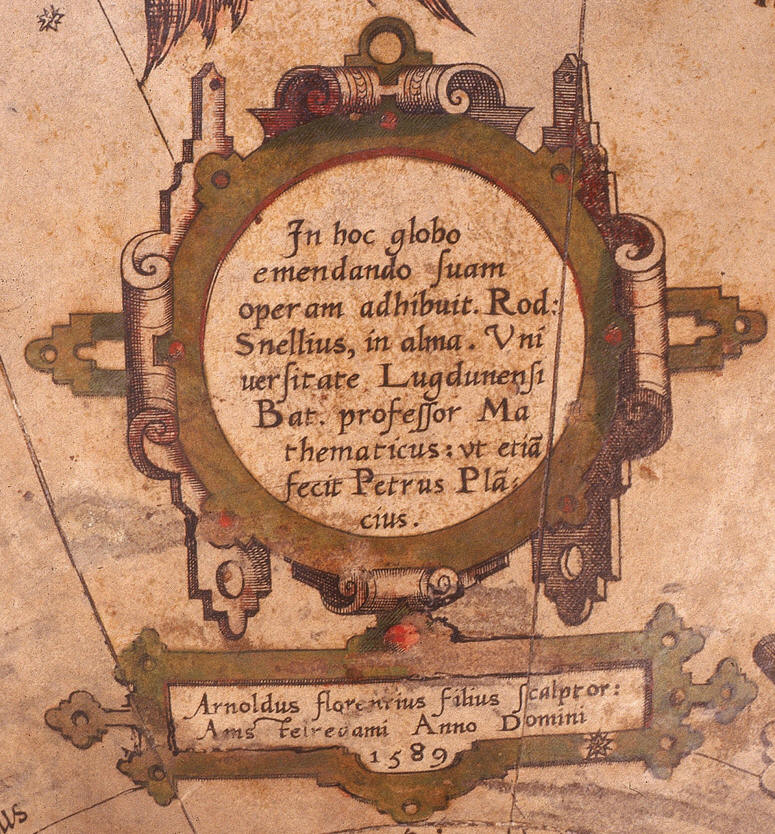 In hoc globo
emendando ſuam
operam adhibuit. Rod:
Snellius, in alma. Vni
uerſitate Lugdunenſi
Bat. profeſſor Ma
thematicus: vt etiā
fecit Petrus Plā:
cius.
Arnoldus florentius filius ſcalptor:
Amstelredami Anno Domini
1589
us